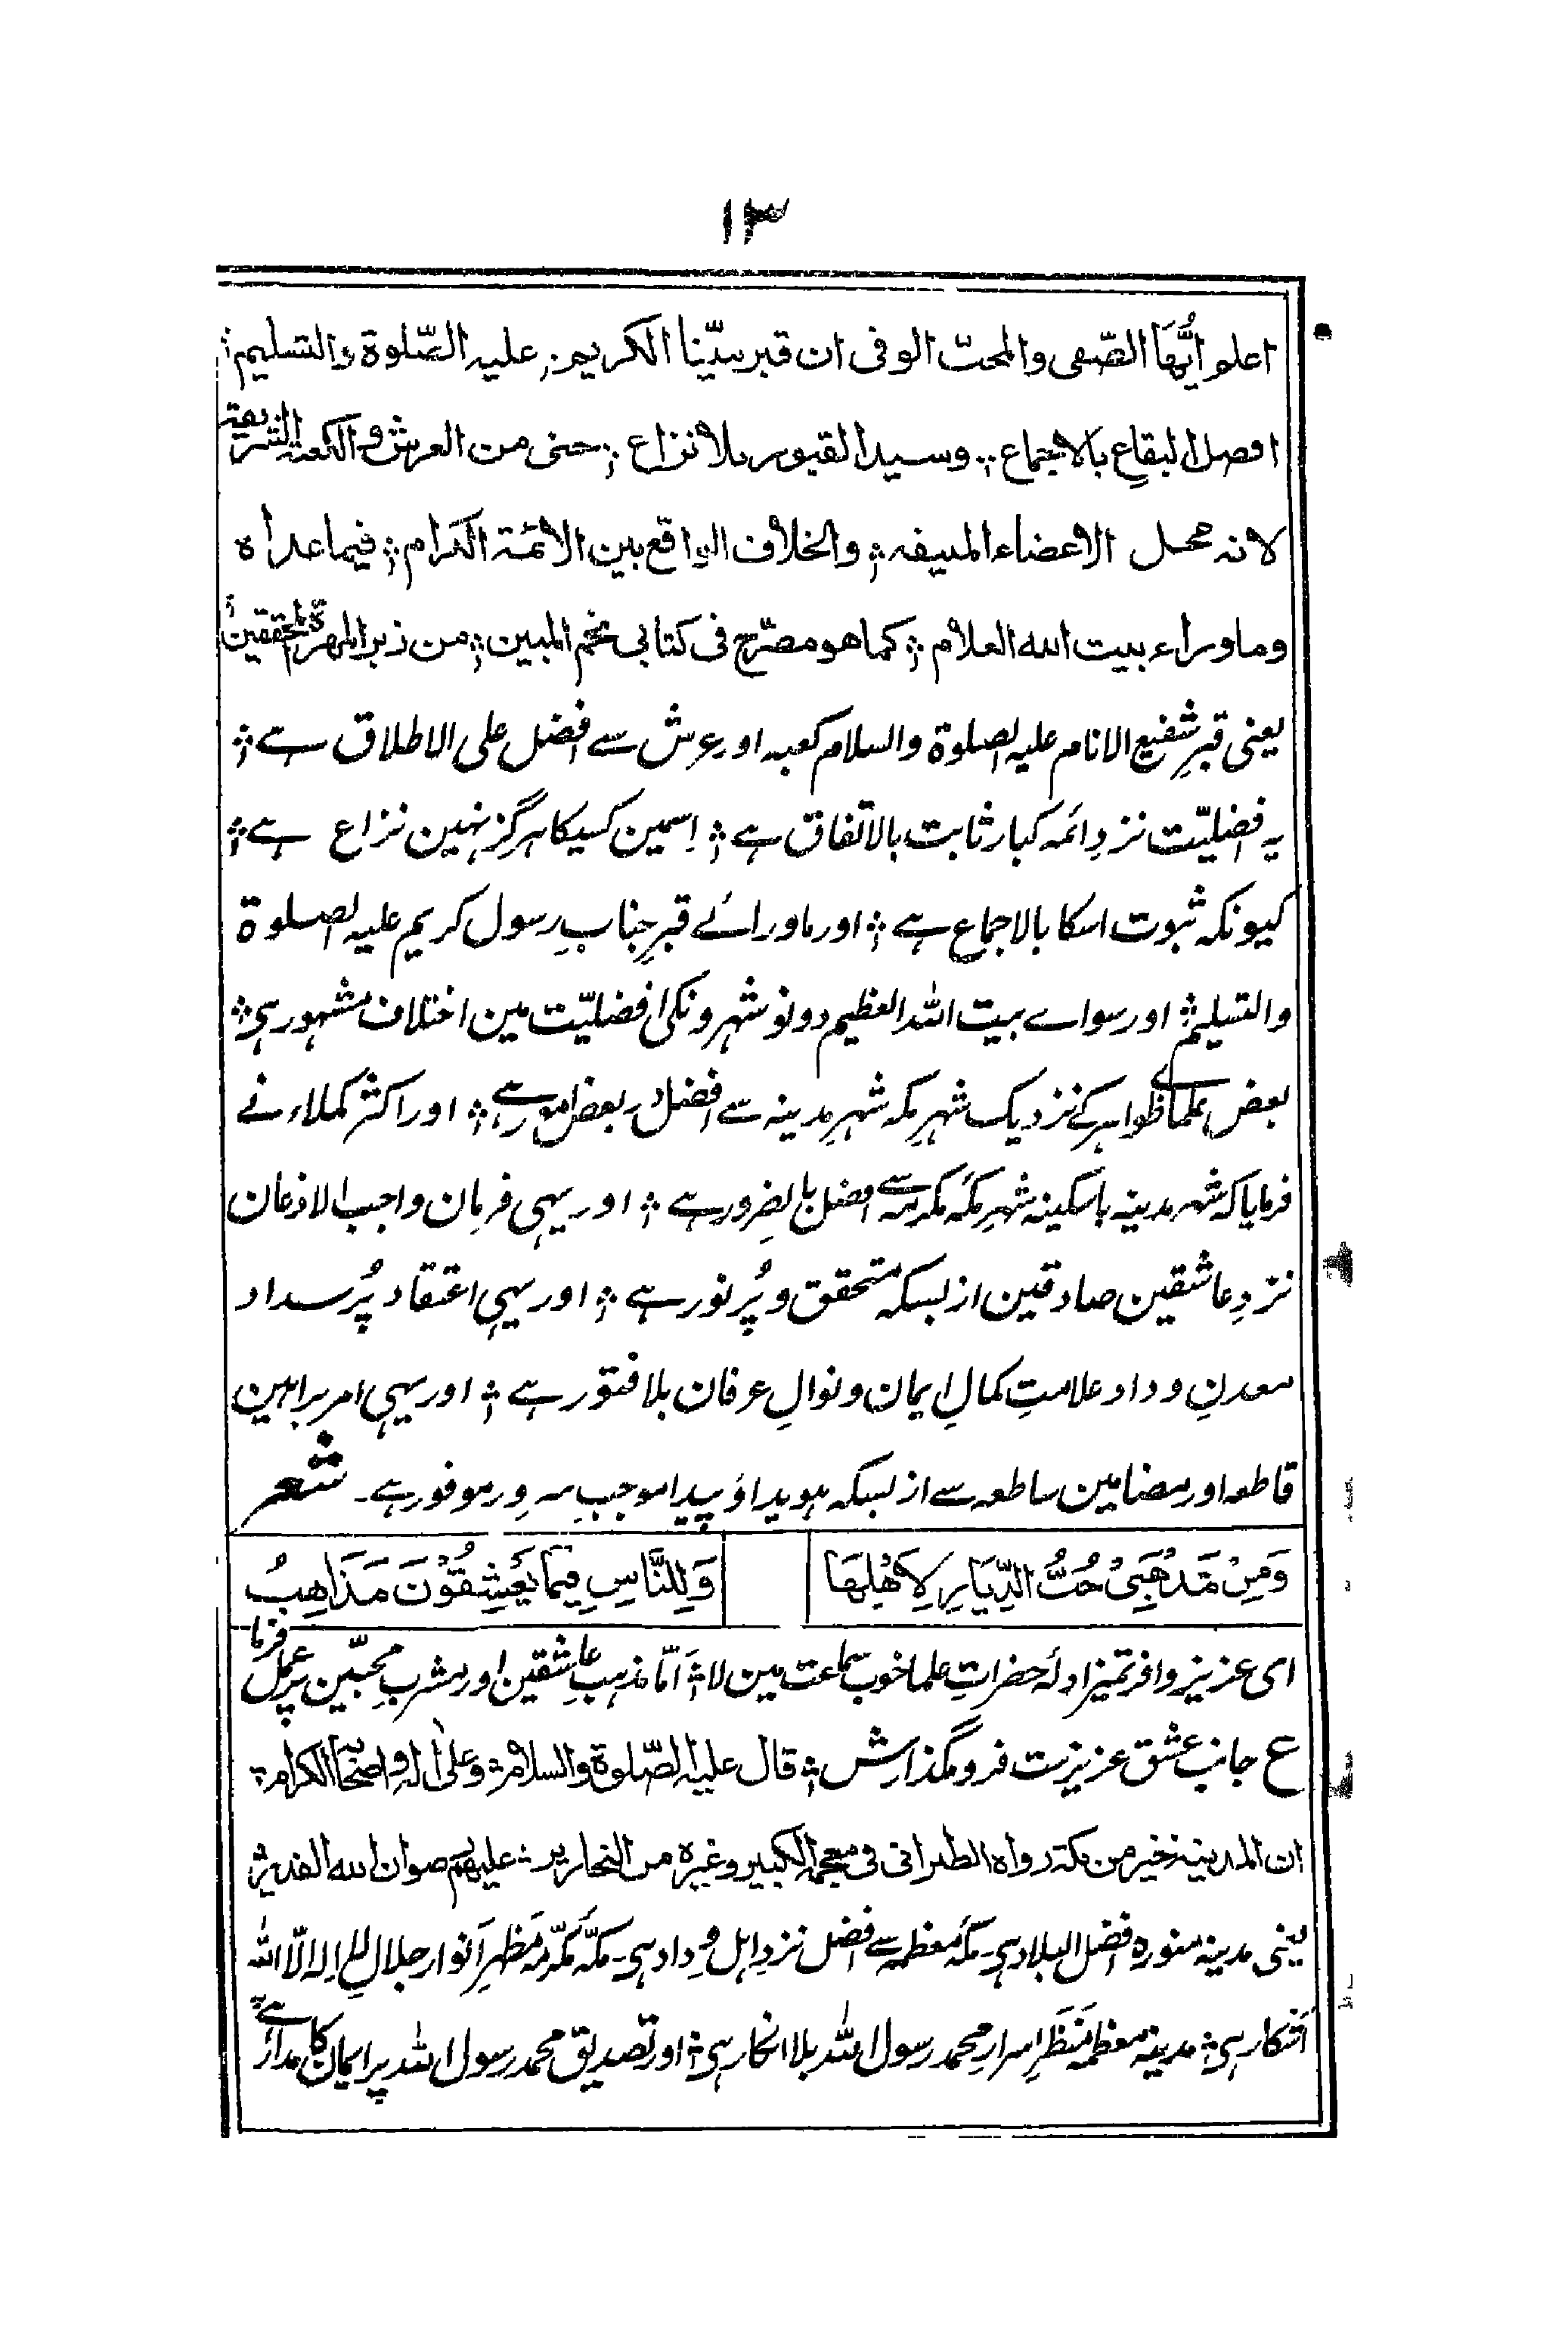 ١٣
اعلم ايُّهَا الصّفی والمحبّ الوفی ان قبر سیّدنا الکریم؛ علیه الصّلوة والتسلیم؛
افضل البقاع بالاجماع؛ وسید القبور بلا نزاع؛ حتی من العرش والکعبة الشریفة
لانه محل الاعضاء المنیفه؛ والخلاف الواقع بین الائمة الکرام؛ فیما عداه
وما وراء بیت الله العلام؛ کما هو مصرّح فی کتابی نجم المبین؛ من زبر المهرة المحققین
یعنی قبرِ شفیع الانام علیہ الصلوة والسلام کعبہ اور عرش سے افضل علی الاطلاق ہے؛
یہ فضلیّت نزدِ ائمہ کبار ثابت بالاتفاق ہے؛ اِسمین کسیکا ہرگز نہین نزاع ہے؛
کیونکہ ثبوت اسکا بالاجماع ہے؛ اور ماورائے قبرِ جنابِ رسول کریم علیہ الصلوة
والتسلیم؛ اور سواے بیت اللہ العظیم دونو شہرونکی افضلیّت مین اختلاف مشہور ہی؛
بعض علماے ظواہر کے نزدیک شہرِ مکہ شہرِ مدینہ سے افضل در بعض امور ہے؛ اور اکثر کملاء نے
فرمایا کہ شہر مدینہ باسکینہ شہرِ مکہ مکرمہ سے افضل بالضرور ہے؛ اور یہی فرمان واجب الاذعان
نزدِ عاشقین صادقین ازبسکہ متحقق و پُر نور ہے؛ اور یہی اعتقاد پُر سداد
معدنِ وداد علامتِ کمالِ ایمان و نوالِ عرفان بلا فتور ہے؛ اور یہی امر براہین
قاطعہ اور مضامین ساطعہ سے ازبسکہ ہویدا و پیدا موجبِ سرورِ موفور ہے۔ شعر
وَمِنْ مَذْهَبِیْ حُبُّ الدِّیَارِ لِاَهْلِهَا وَلِلنَّاسِ فِیْمَا یَعْشِقُوْنَ مَذَاهِبُ
ای عزیز وافر تمیز ادلہٴ حضراتِ علما خوب سماعت مین لا؛ اَمّا مذہبِ عاشقین اور مشربِ محبّین پر عمل فرما
ع جانبِ عشق عزیزست فرو مگذارش؛ قال علیه الصّلوة والسلام؛ وعلی اله واصحابه الکرام؛
ان المدینة خیر من مکة رواه الطبرانی فی معجمه الکبیر وغیره من النحاریر؛ علیهم رضوان الله القدیر؛
یعنی مدینہ منورہ افضل البلاد ہی۔ مکہٴ معظمہ سے افضل نزدِ اہل وِداد ہی۔ مکّہٴ مکرّمہ مَظہرِ اَنوار جلال لا اِلہ اِلّا اللہ
آشکار ہی؛ مدینہٴ معظمہ مَنظَرِ اسرار محمد رسول اللہ بلا انکار ہی؛ اور تصدیق محمد رسول اللہ پر ایمان کا مدار ہے؛